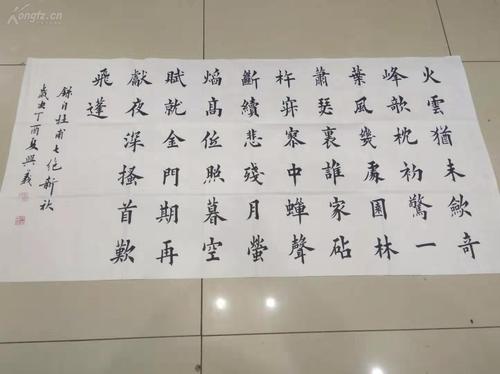 Kongfz.cn
火雲猶未斂奇
峰欹枕初驚一
葉風幾處園林
蕭瑟裏誰家砧
杵寂寥中蟬聲
斷續悲殘月螢
焰高低照暮空
賦就金門期再
獻夜深搔首歎
飛蓬
錄自杜甫七绝新秋
歲丁酉夏興義